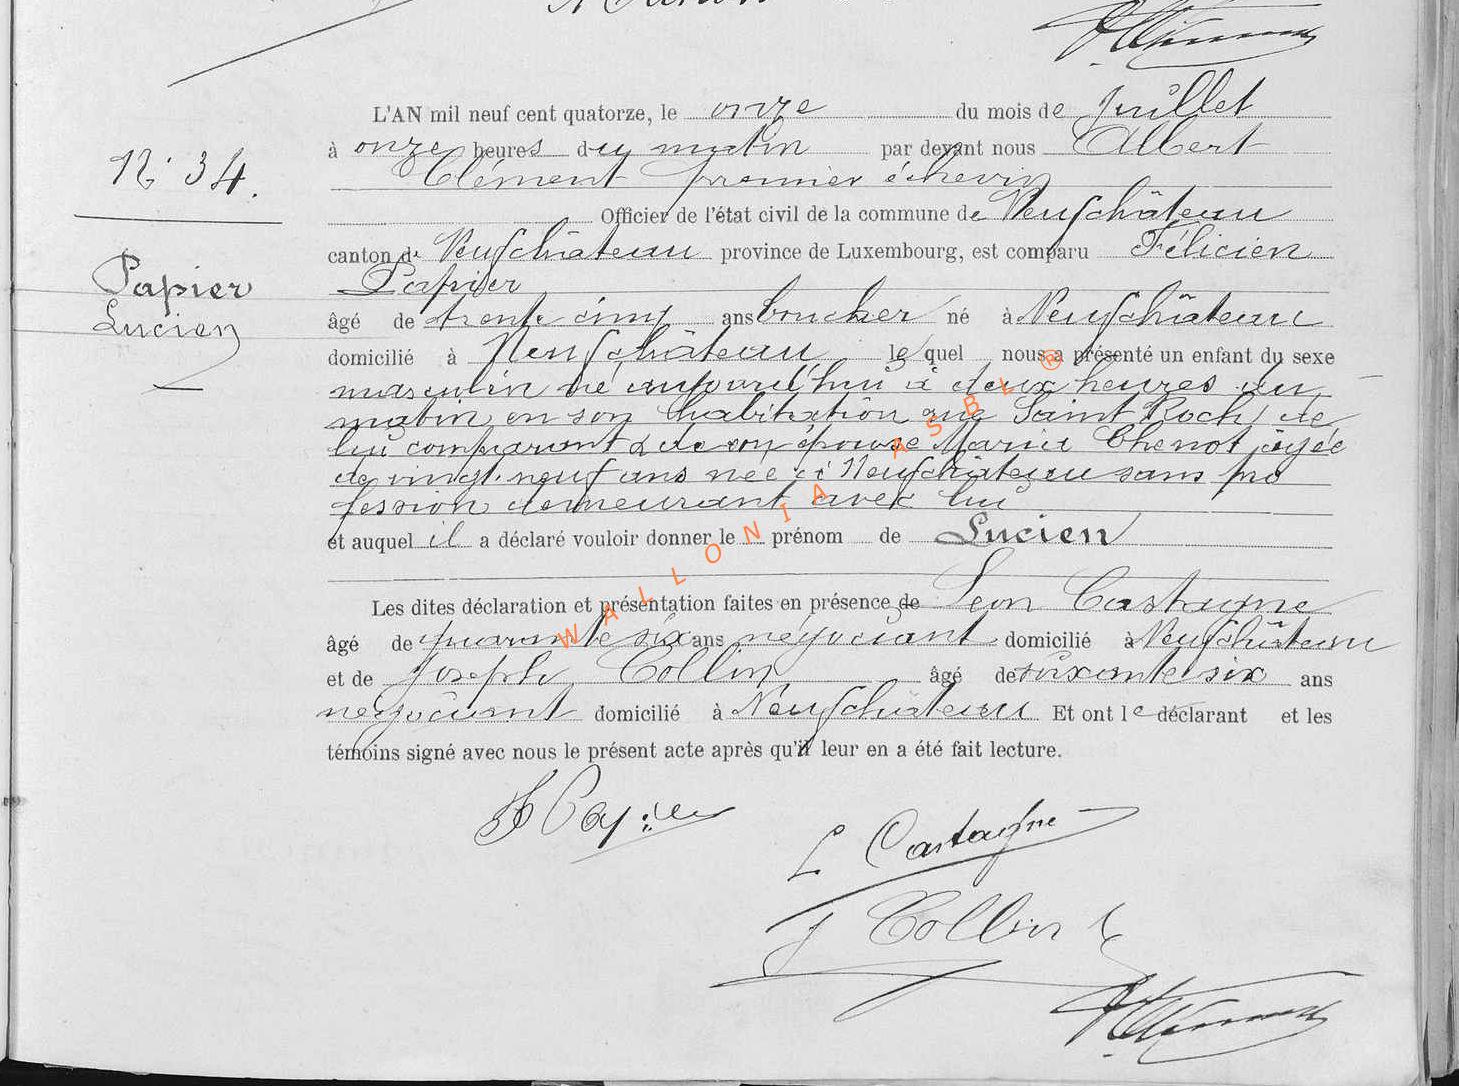 N° 34.
Papier
Lucien
L'AN mil neuf cent quatorze, le onze du mois de Juillet
à onze heures du matin par devant nous Albert
Clément premier échevin
Officier de l'état civil de la commune de Neufchâteau
canton de Neufchâteau province de Luxembourg, est comparu Félicien
Papier
âgé de trente cinq ans boucher né à Neufchâteau
domicilié à Neufchâteau lequel nous a présenté un enfant du sexe
masculin né aujourd'hui à deux heures du
matin en son habitation rue Saint Roch, de
lui comparant & de son épouse Maria Chenot âgée
de vingt-neuf ans née à Neufchâteau sans pro
fession demeurant avec lui
et auquel il a déclaré vouloir donner le prénom de Lucien
Les dites déclaration et présentation faites en présence de Léon Castagne
âgé de quarante six ans négociant domicilié à Neufchâteau
et de Joseph Collin âgé de soixante six ans
négociant domicilié à Neufchâteau Et ont le déclarant et les
témoins signé avec nous le présent acte après qu'il leur en a été fait lecture.
F Papier
L Castagne
J Collin
WALLONIA ASBL ®